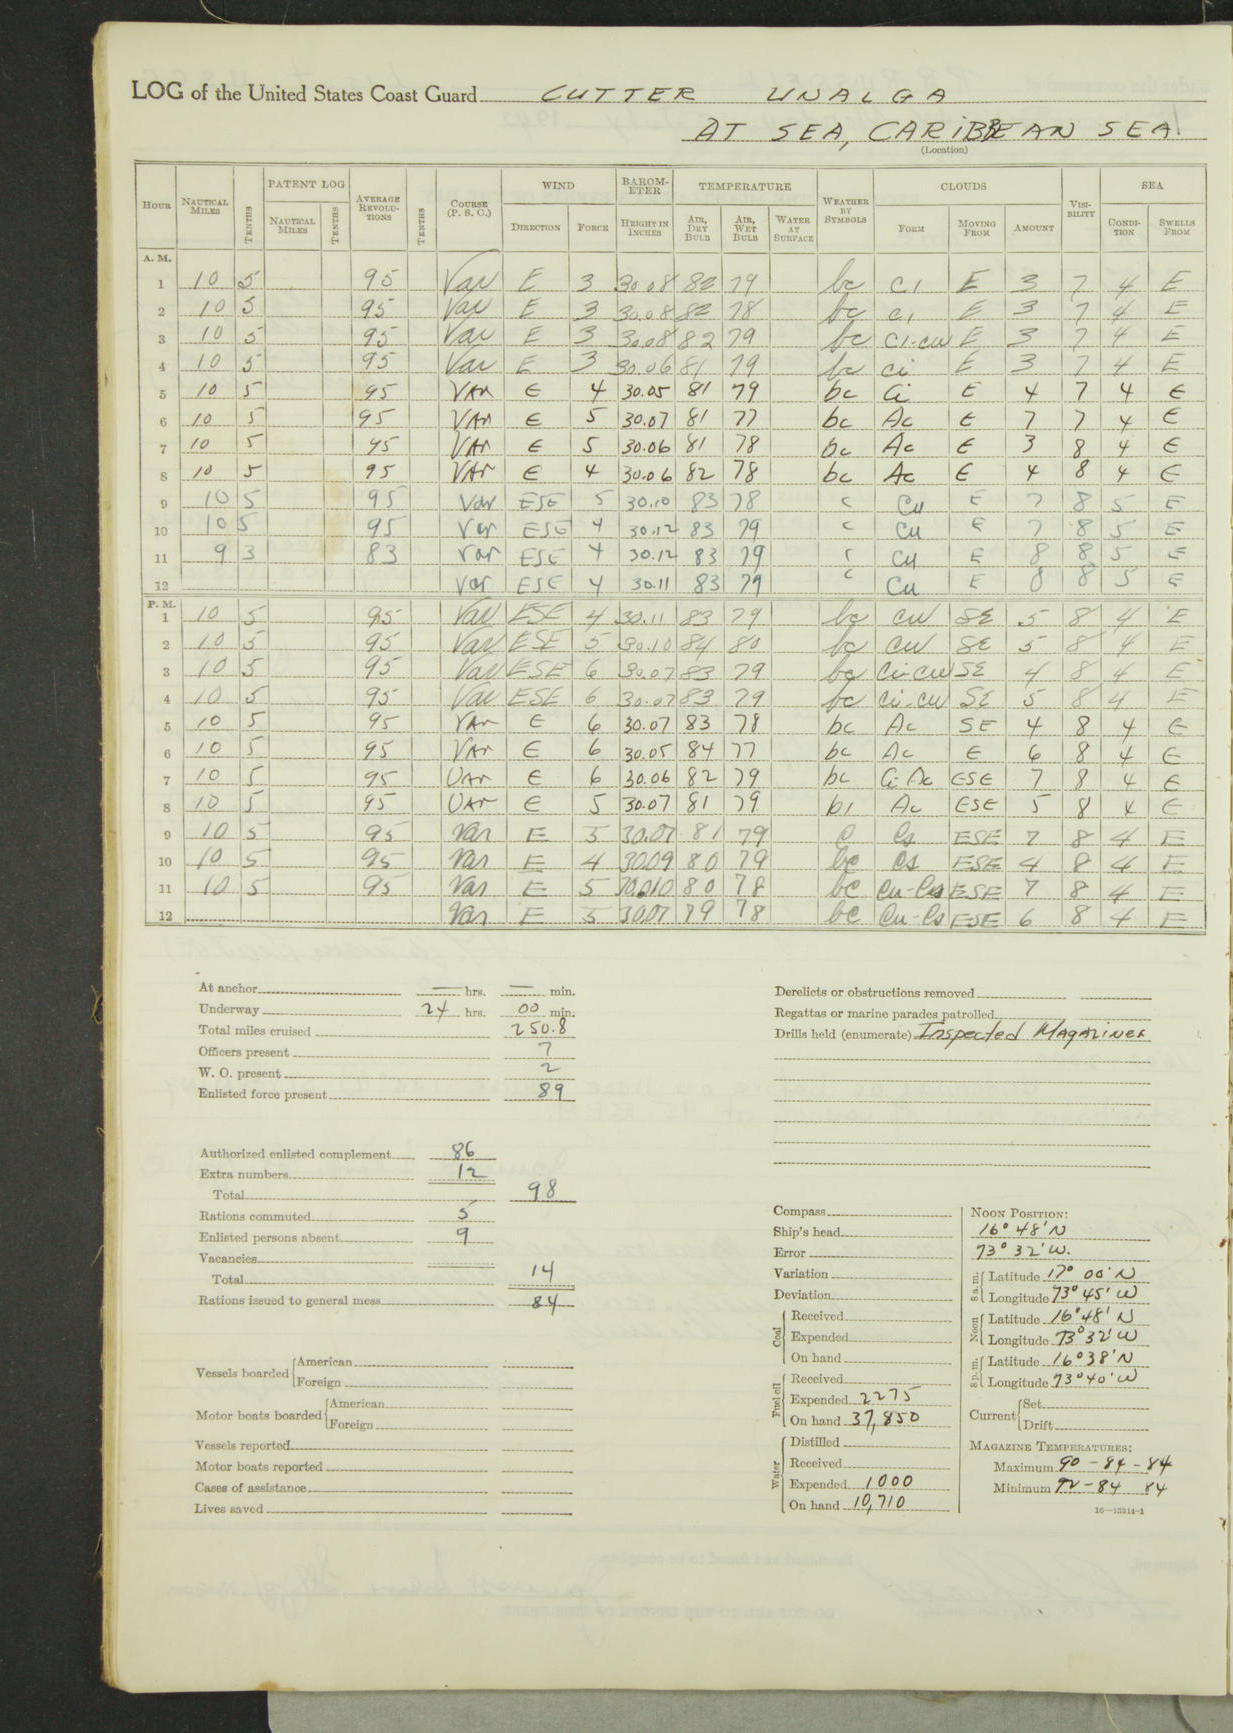 LOG of the United States Coast Guard CUTTER UNALGA
AT SEA, CARIBBEAN SEA
(Location)
HOUR NAUTICAL MILES TENTHS PATENT LOG NAUTICAL MILES TENTHS AVERAGE REVOLUTIONS TENTHS COURSE (P. S. C.) WIND DIRECTION FORCE BAROMETER HEIGHT IN INCHES TEMPERATURE AIR, DRY BULB AIR, WET BULB WATER AT SURFACE WEATHER BY SYMBOLS CLOUDS FORM MOVING FROM AMOUNT VISIBILITY SEA CONDITION SWELLS FROM
A. M.
1 10 5 95 Var E 3 30.08 82 79 bc Ci E 3 7 4 E
2 10 5 95 Var E 3 30.08 82 78 bc Ci E 3 7 4 E
3 10 5 95 Var E 3 30.08 82 79 bc Ci-cu E 3 7 4 E
4 10 5 95 Var E 3 30.06 81 79 bc Ci E 3 7 4 E
5 10 5 95 VAr E 4 30.05 81 79 bc Ci E 4 7 4 E
6 10 5 95 VAr E 5 30.07 81 77 bc Ac E 7 7 4 E
7 10 5 95 VAr E 5 30.06 81 78 bc Ac E 3 8 4 E
8 10 5 95 VAr E 4 30.06 82 78 bc Ac E 4 8 4 E
9 10 5 95 Var ESE 5 30.10 83 78 c Cu E 7 8 5 E
10 10 5 95 Var ESE 4 30.12 83 79 c Cu E 7 8 5 E
11 9 3 83 Var ESE 4 30.12 83 79 c Cu E 8 8 5 E
12 Var ESE 4 30.11 83 79 c Cu E 8 8 5 E
P. M.
1 10 5 95 Var ESE 4 30.11 83 79 bc Cu SE 5 8 4 E
2 10 5 95 Var ESE 5 30.10 84 80 bc Cu SE 5 8 4 E
3 10 5 95 Var ESE 6 30.07 83 79 bc Ci-cu SE 4 8 4 E
4 10 5 95 Var ESE 6 30.07 83 79 bc Ci-cu SE 5 8 4 E
5 10 5 95 VAr E 6 30.07 83 78 bc Ac SE 4 8 4 E
6 10 5 95 VAr E 6 30.05 84 77 bc Ac E 6 8 4 E
7 10 5 95 VAr E 6 30.06 82 79 bc Ci Ac ESE 7 8 4 E
8 10 5 95 VAr E 5 30.07 81 79 Ac ESE 5 8 4 E
9 10 5 95 Var E 5 30.07 81 79 C Cs ESE 7 8 4 E
10 10 5 95 Var E 4 30.09 80 79 bc Cs ESE 4 8 4 E
11 10 5 95 Var E 5 80 78 bc Cu-Cs ESE 7 8 4 E
12 Var E 5 30.07 79 78 bc Cu-Cs ESE 6 8 4 E
At anchor — hrs. — min.
Underway 24 hrs. 00 min.
Total miles cruised 250.8
Officers present 7
W. O. present 2
Enlisted force present 89
Authorized enlisted complement 86
Extra numbers 12
Total 98
Rations commuted 5
Enlisted persons absent 9
Vacancies
Total 14
Rations issued to general mess 84
Vessels boarded American
Foreign
Motor boats boarded American
Foreign
Vessels reported
Motor boats reported
Cases of assistance
Lives saved
Derelicts or obstructions removed
Regattas or marine parades patrolled
Drills held (enumerate) Inspected Magazines
Compass
Ship's head
Error
Variation
Deviation
Coal Received
Expended
On hand
Fuel oil Received
Expended 2275
On hand 37,850
Water Distilled
Received
Expended 1000
On hand 10,710
NOON POSITION:
16° 48' N
73° 32' W.
8 a. m. Latitude 17° 00' N
Longitude 73° 45' W
Noon Latitude 16° 48' N
Longitude 73° 32' W
8 p. m. Latitude 16° 38' N
Longitude 73° 40' W
Current Set
Drift
MAGAZINE TEMPERATURES:
Maximum 90 - 84 - 84
Minimum 90 - 84 84
16—13214-1